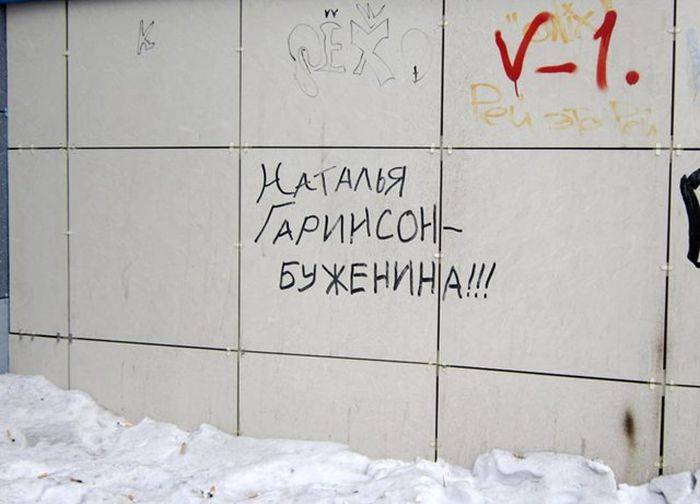 К
РЁЖ
"ONIX"
V-1.
Рей это Рей
НАТАЛЬЯ
ГАРИНСОН-
БУЖЕНИНА!!!